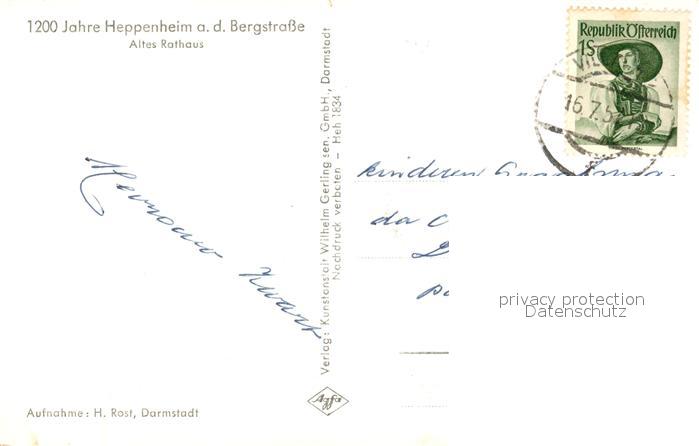 1200 Jahre Heppenheim a. d. Bergstraße
Altes Rathaus
Republik Österreich
1S
VIL
16.7.5
Verlag: Kunstanstalt Wilhelm Gerling sen. GmbH., Darmstadt
Nachdruck verboten – Heh 1834
Hermann
kinderen
da
privacy protection
Datenschutz
Agfa
Aufnahme: H. Rost, Darmstadt